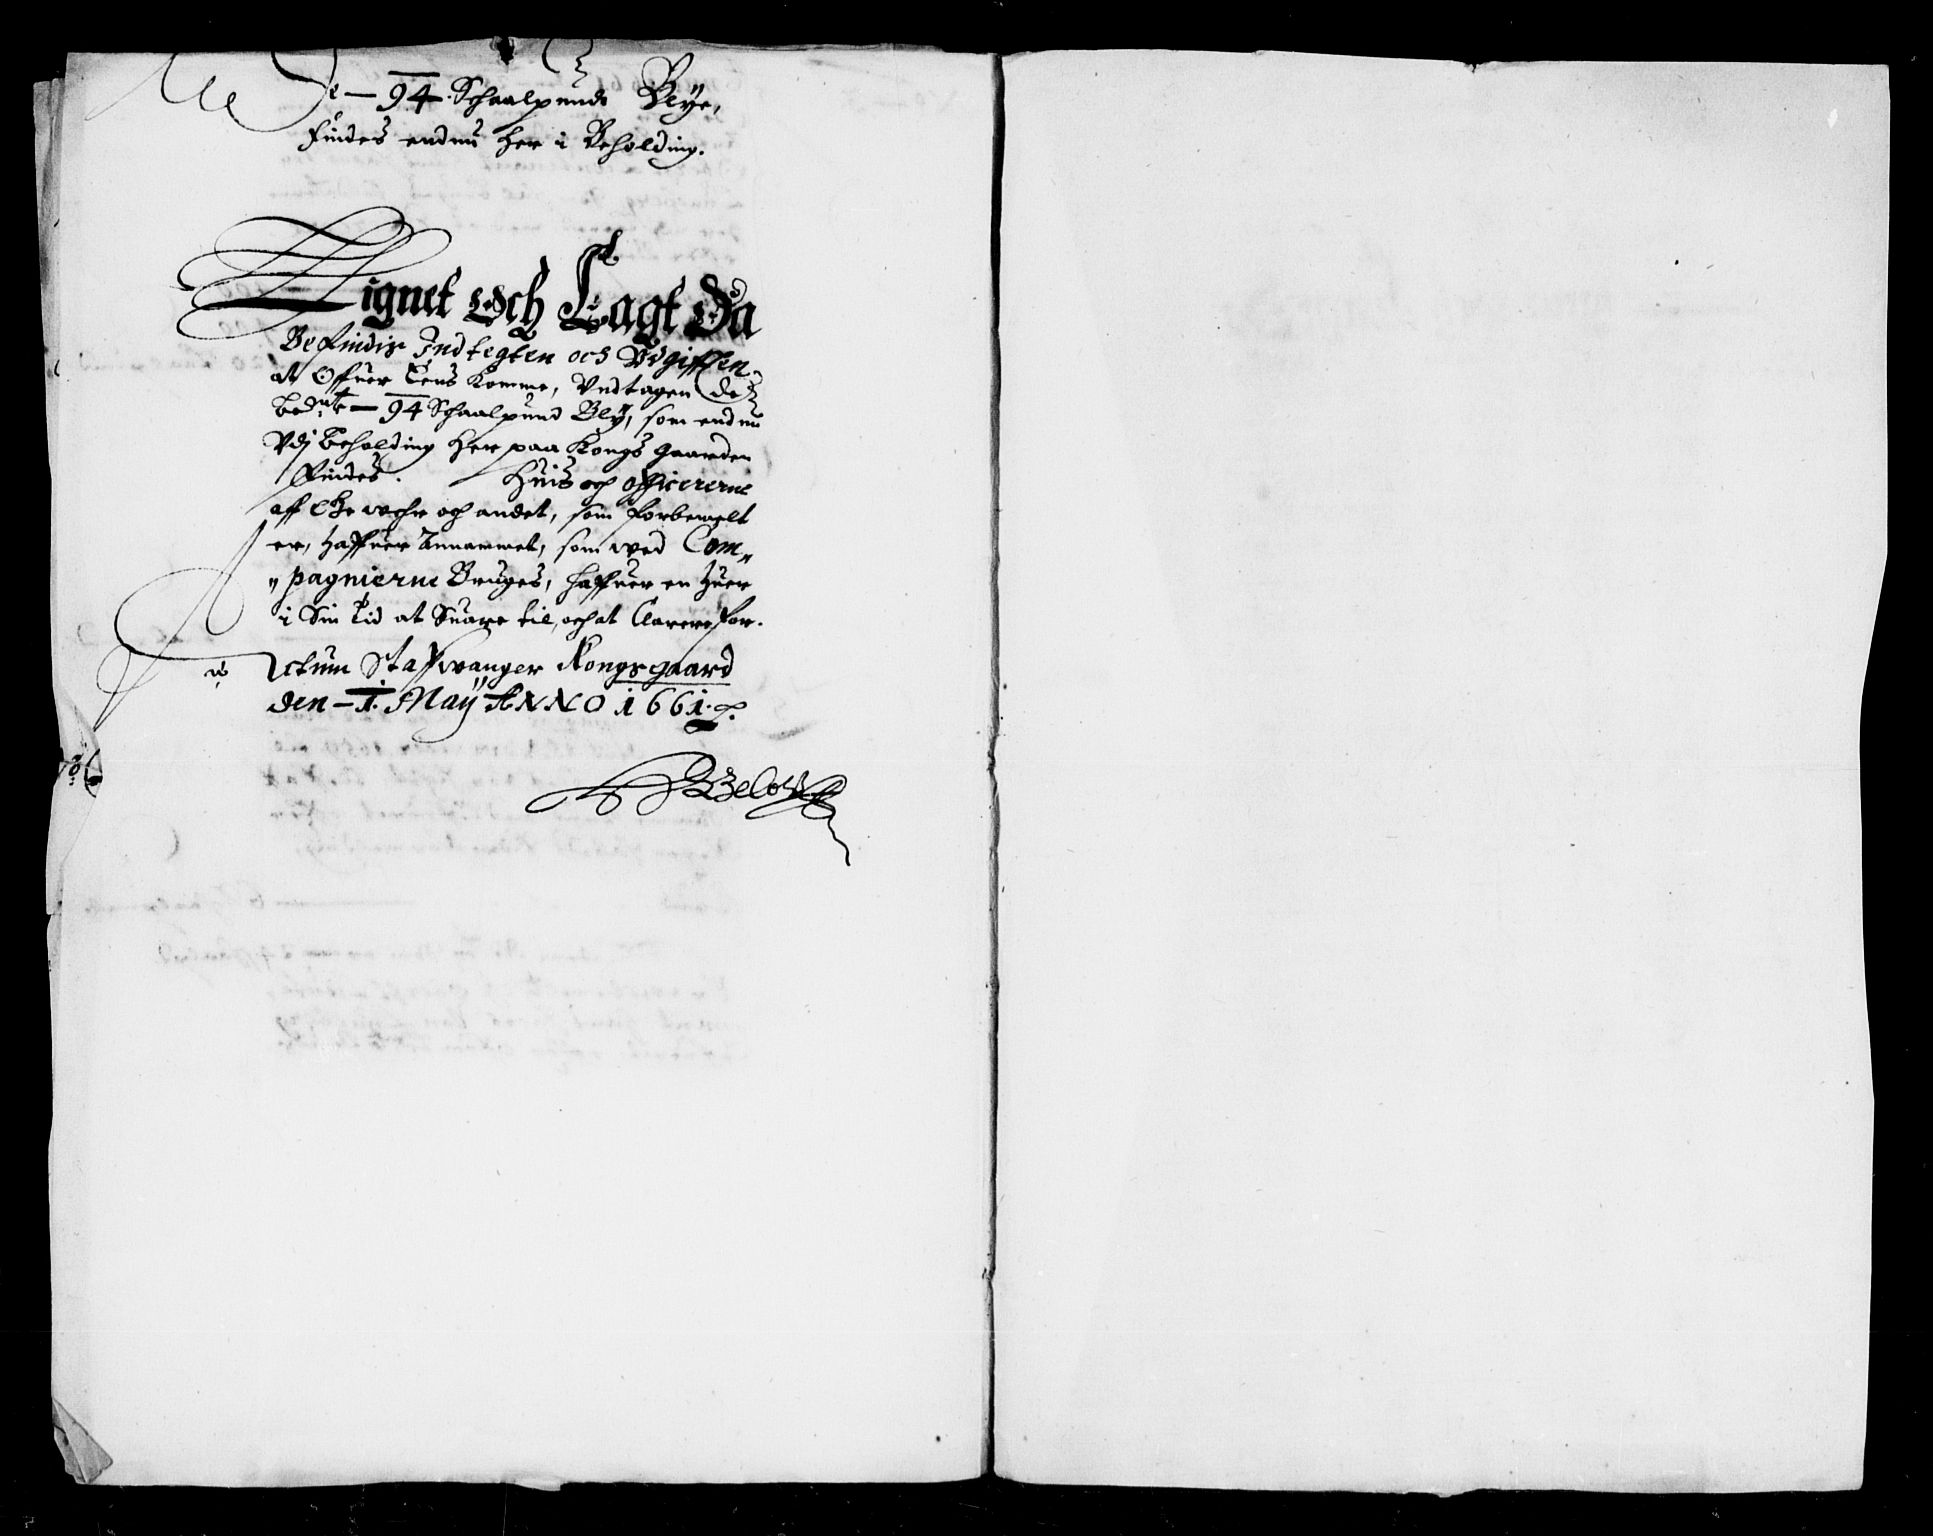 De — 94 Schaalpunds Blye,
findes endnu her i Beholding.
Lignet Och Lagt Da
Befindis Indtegten och Vdgifften
at Offuer Eens Komme, Vndtagen de
bedte — 94 Schaalpund Bly, som endnu
Vdj Beholding her paa Kongs Gaarden
findes. Huis och officererne
aff Ge wehr och andet, som forbemelt
er, haffuer Annammet, som wed Com„
„pagnierne Bruges, haffuer en huer
i Sin tid at Suare til, och at Clarere for.
Actum Staffwanger Kongsgaard
den — 1. Maÿ ANNO 1661.